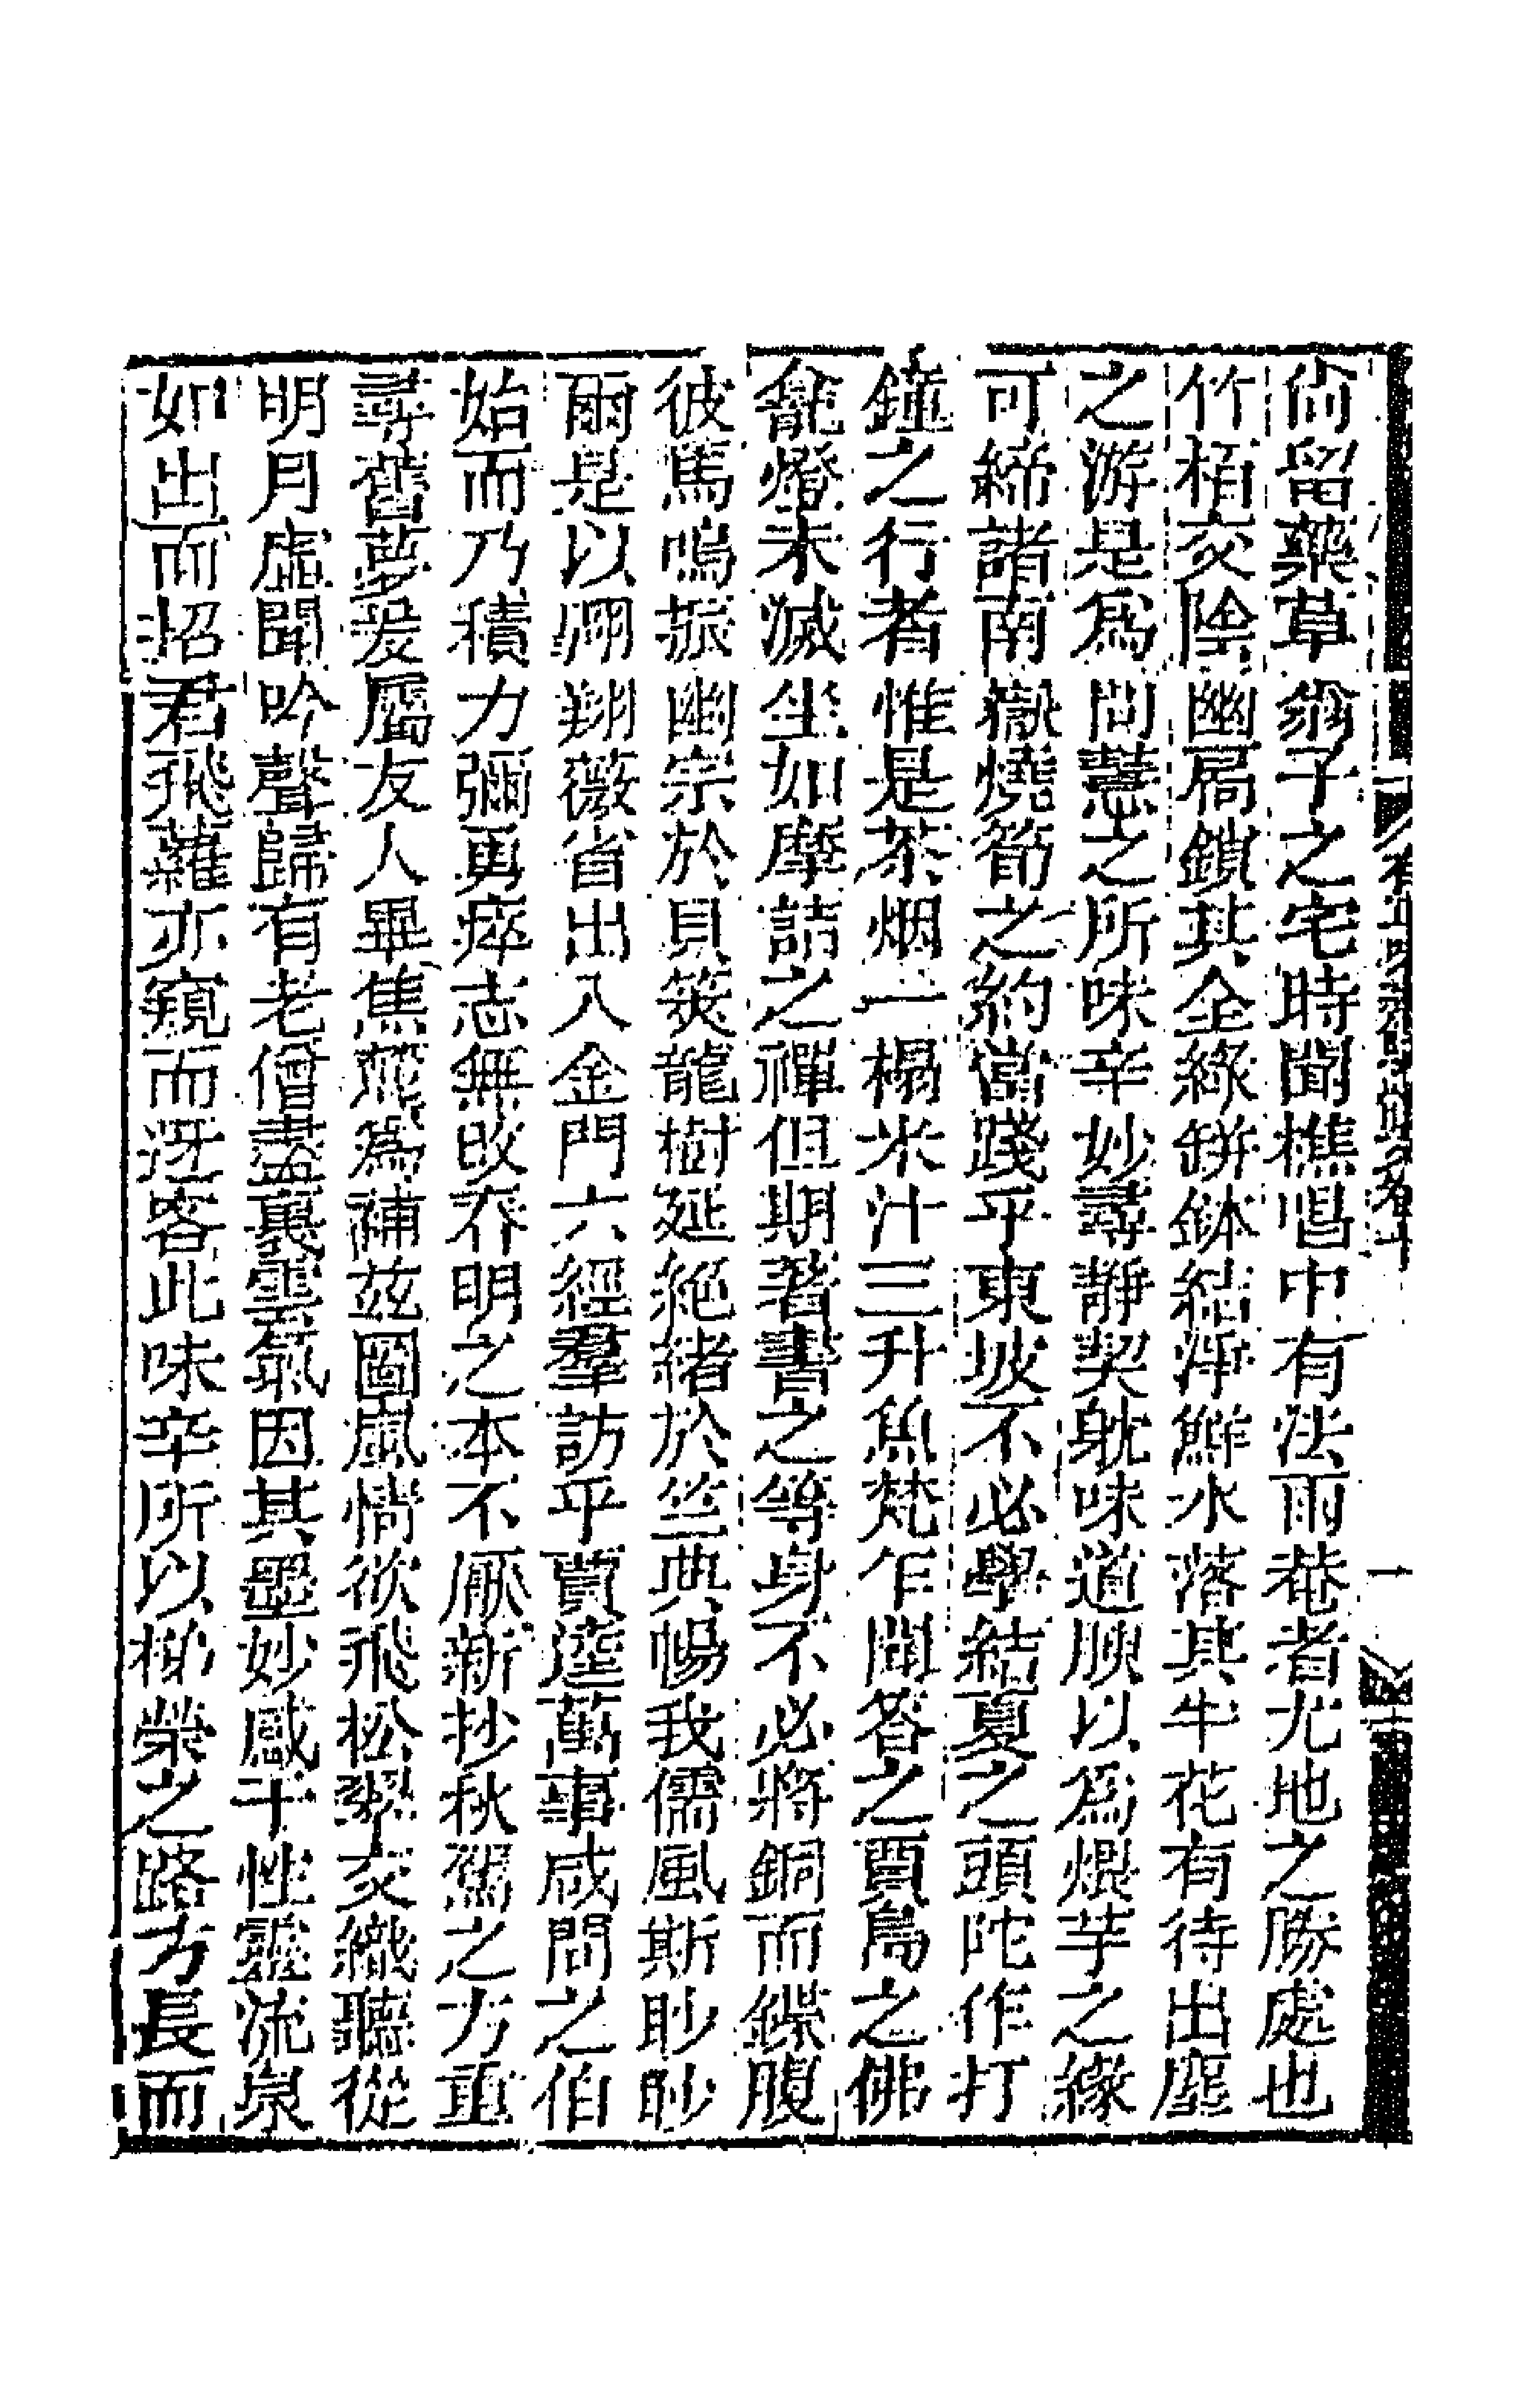 尙留藥草翁子之宅時聞樵唱中有法雨菴者尤地之勝處也
竹栢交陰幽扃鎖其全綠缾鉢結淨鮮水落其牛花有待出塵
之游是爲問慧之所味辛妙尋靜契躭味道腴以爲煨芋之緣
可締諸南嶽燒筍之約當踐乎東坡不必學結夏之頭陀作打
鐘之行者惟是茶烟一榻米汁三升魚梵乍聞答之賈島之佛
龕燈未滅坐如摩詰之禪但期著書之等身不必將銅而鍱腹
彼馬鳴振幽宗於貝筴龍樹延絕緒於竺典暢我儒風斯眇眇
爾是以翺翔薇省出入金門六經羣訪乎賈逵萬事咸問之伯
始而乃積力彌勇瘁志無攺夲明之本不厭新抄秋駕之方重
尋舊夢爰屬友人畢焦麓爲補茲圖嵐情欲飛松翠交織聽從
明月虛聞吟聲歸有老僧盡裹雲氣因其墨妙感乎性靈流泉
如出而招君飛蘿亦窺而迓客此味辛所以榮之路方長而
一